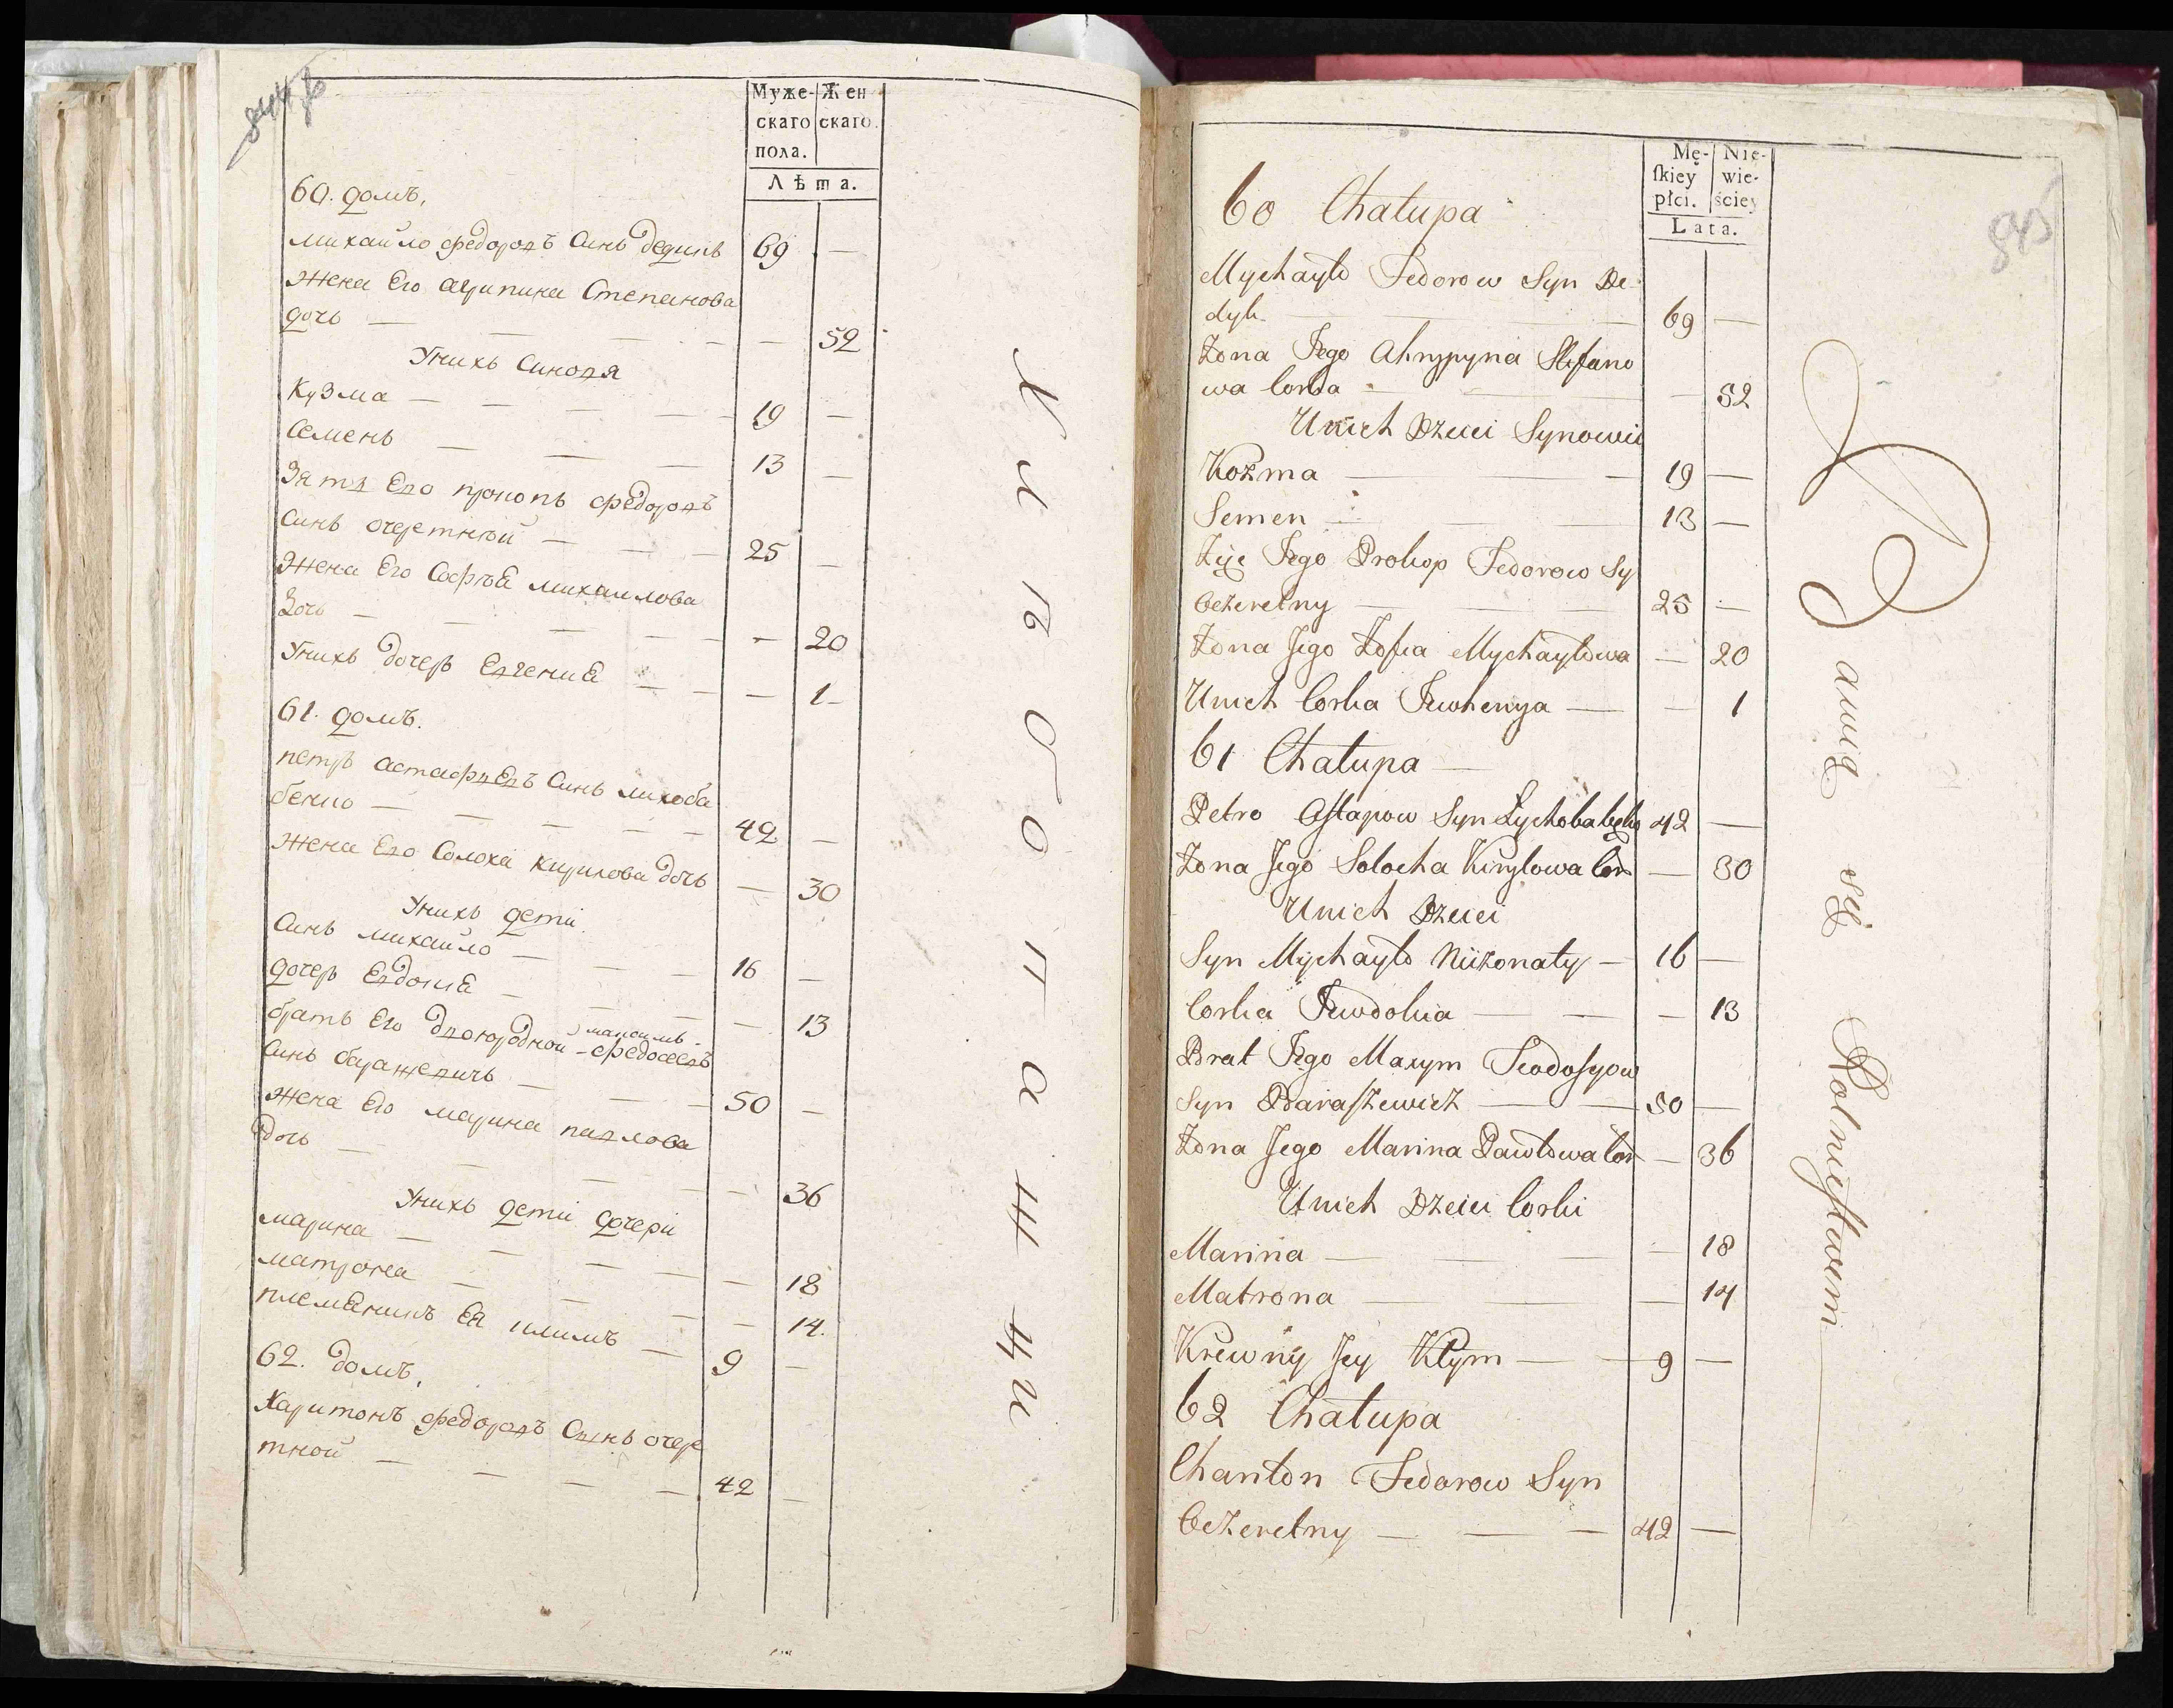 Муже-
скаго
пола.
Жен
скаго.
Лѣта.
60. домъ.
михайло федоровъ синъ дедикъ 69 —
жена Его агрипина Степанова
дочь — — 52
Унихъ Синовя
Кузма — 19 —
Семенъ — 13 —
Зять Его прокопъ федоровъ
синъ очеретной — 25 —
жена Его Софъѣ михаилова
дочь — — 20
Унихъ дочеръ Евгениѣ — — 1
61. домъ.
петръ астафѣевъ синъ лихоба
бенко — 42 —
жена Его Солоха Кирилова дочь — 30
Унихъ дети
Синъ михайло — 16 —
дочеръ Евдокиѣ — — 13
братъ Его двоюродной максимъ федосеевъ
синъ барашевичъ — 50 —
жена Его марина павлова
дочь — — 36
Унихъ дети дочери
марина — — 18
матрона — — 14.
племѣникъ Еѣ климъ — 9 —
62. домъ.
Харитонъ федоровъ Синъ очере
тной — 42 —
Хлѣбопашци
845
Mę-
ſkiey
płci.
Nie-
wie-
ściey
Lata.
60 Chałupa
Mychayło Fedorow Syn De-
dyk — 69 —
Żona Jego Ahrypyna Stefano
wa Corka — — 52
Unich Dzieci Synowii
Kozma — 19 —
Semen — 13 —
Zięc Jego Prokop Fedorow Sy
Oczeretny — 25 —
Żona Jego Zofia Mychayłowa — 20
Unich Corka Jewhenya — — 1
61 Chałupa —
Petro Aſtapow Syn Łychobabęko 42 —
Żona Jego Solocha Kirylowa Cor — 30
Unich Dzieci
Syn Mychayło Niżonaty — 16 —
Corka Jewdokia — — 13
Brat Jego Maxym Feodoſyow
Syn Baraſzewicz — 50 —
Żona Jego Marina Pawłowa Cor — 36
Unich Dzieci Corki
Marina — — 18
Matrona — — 14
Krewny Jey Kłym — 9 —
62 Chałupa
Chariton Fedorow Syn
Oczeretny — 42 —
Bawią się Rolnictwem